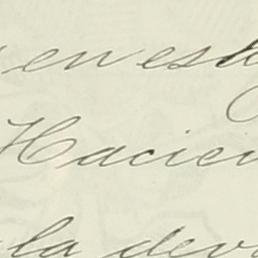 en est
Hacien
la devo